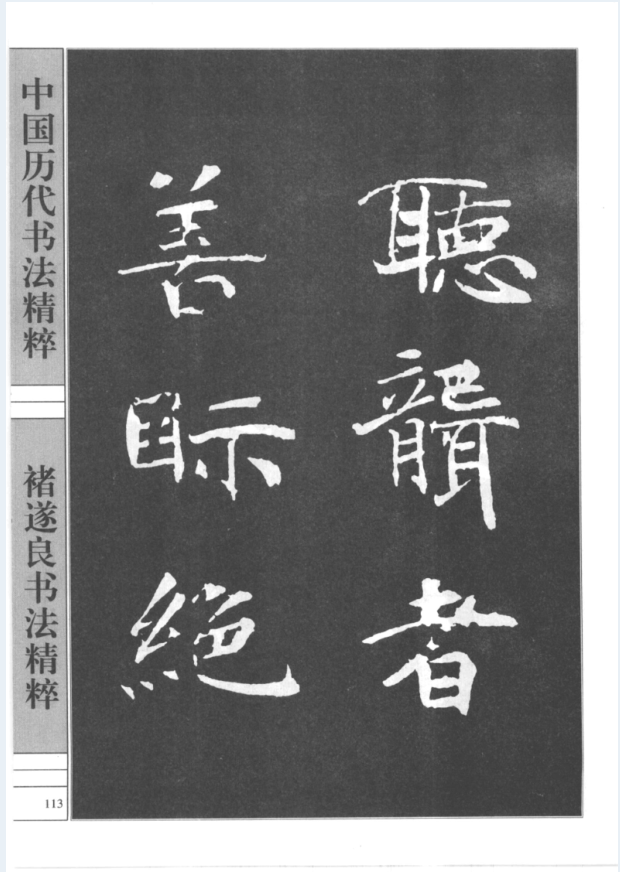 聽聾者
善眎絶
中国历代书法精粹
褚遂良书法精粹
113